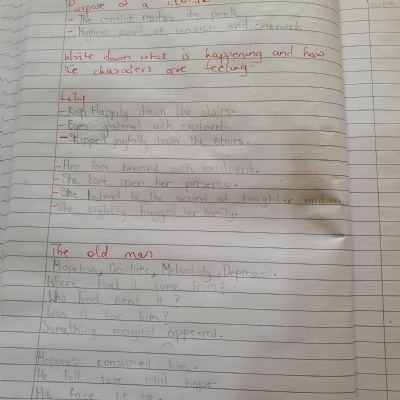 Purpose of a climax
- The conflict reaches its peak
- Highest point of tension and
Write down what is happening and how
the characters are feeling.
Lily
- Ran Happily down the stairs.
- Eyes glistened with excitment.
- Skipped joyfully down the stairs.
- Her face beamed with excitment.
- She tore open her presents.
- She listened to the sound of laughter and
- She tightly hugged her family.
The old man
Hopeless, Desolate, Melancholy, Depressed.
Where had it come from?
Who had sent it?
Was it for him?
Something magical appeared.
Happiness consumed him.
He felt love and hope.
His face lit up.